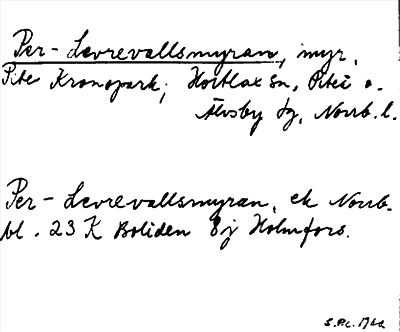 Per-Levrevallsmyran, myr,
Pite Kronopark; Hortlax sn, Piteå o.
Älvsby tg, Norrb. l.
Per-Levrevallsmyran, ek Norrb.
bl. 23 K Boliden 8j Holmfors.